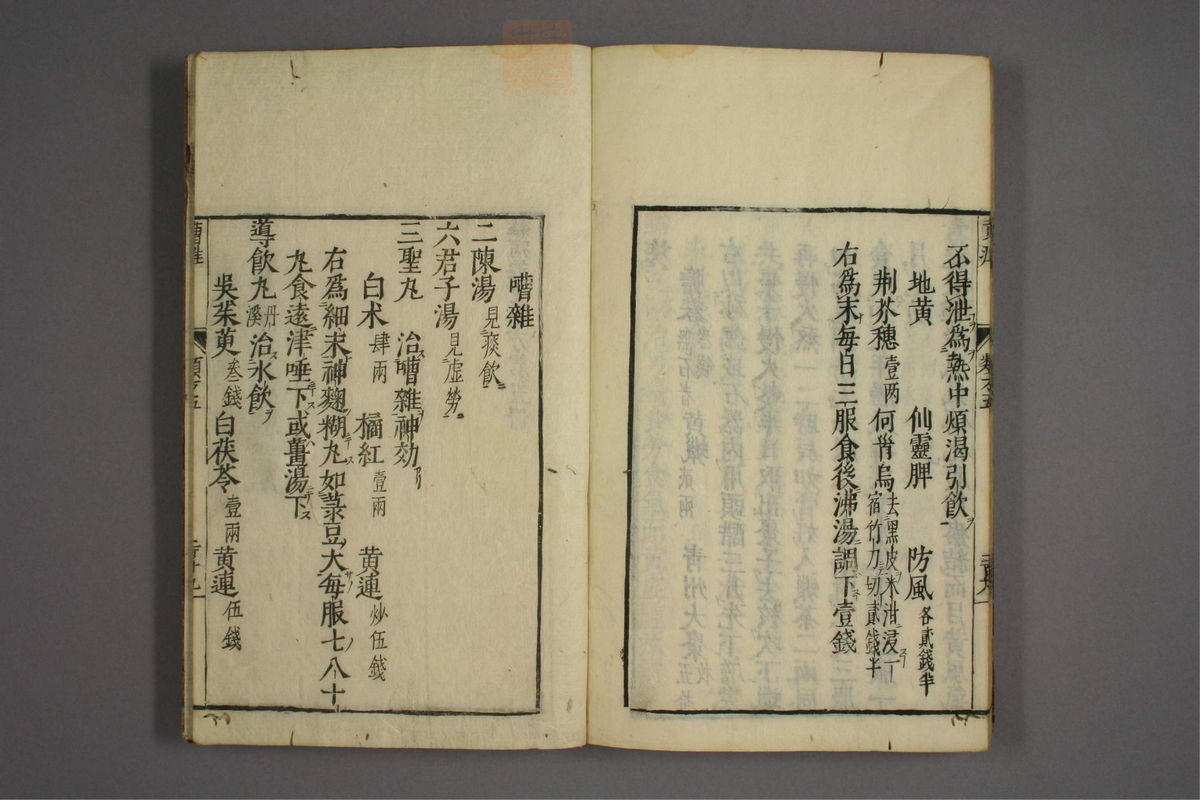 不得泄為熱中煩渴引飲
地黄 仙靈脾 防風各貳錢半
荆芥穗壹两 何首烏去黑皮米泔浸一
宿竹刀切貳錢半
右為末每日三服食後沸湯調下壹錢
嘈雜
二陳湯見痰飲
六君子湯見虛勞
三聖丸 治嘈雜神効
白术肆兩 橘紅壹兩 黄連炒伍錢
右為細末神麴糊丸如菉豆大每服七八十
丸食遠津唾下或薑湯下
導飲丸丹溪治水飲
吳茱萸叁錢 白茯苓壹兩 黄連伍錢